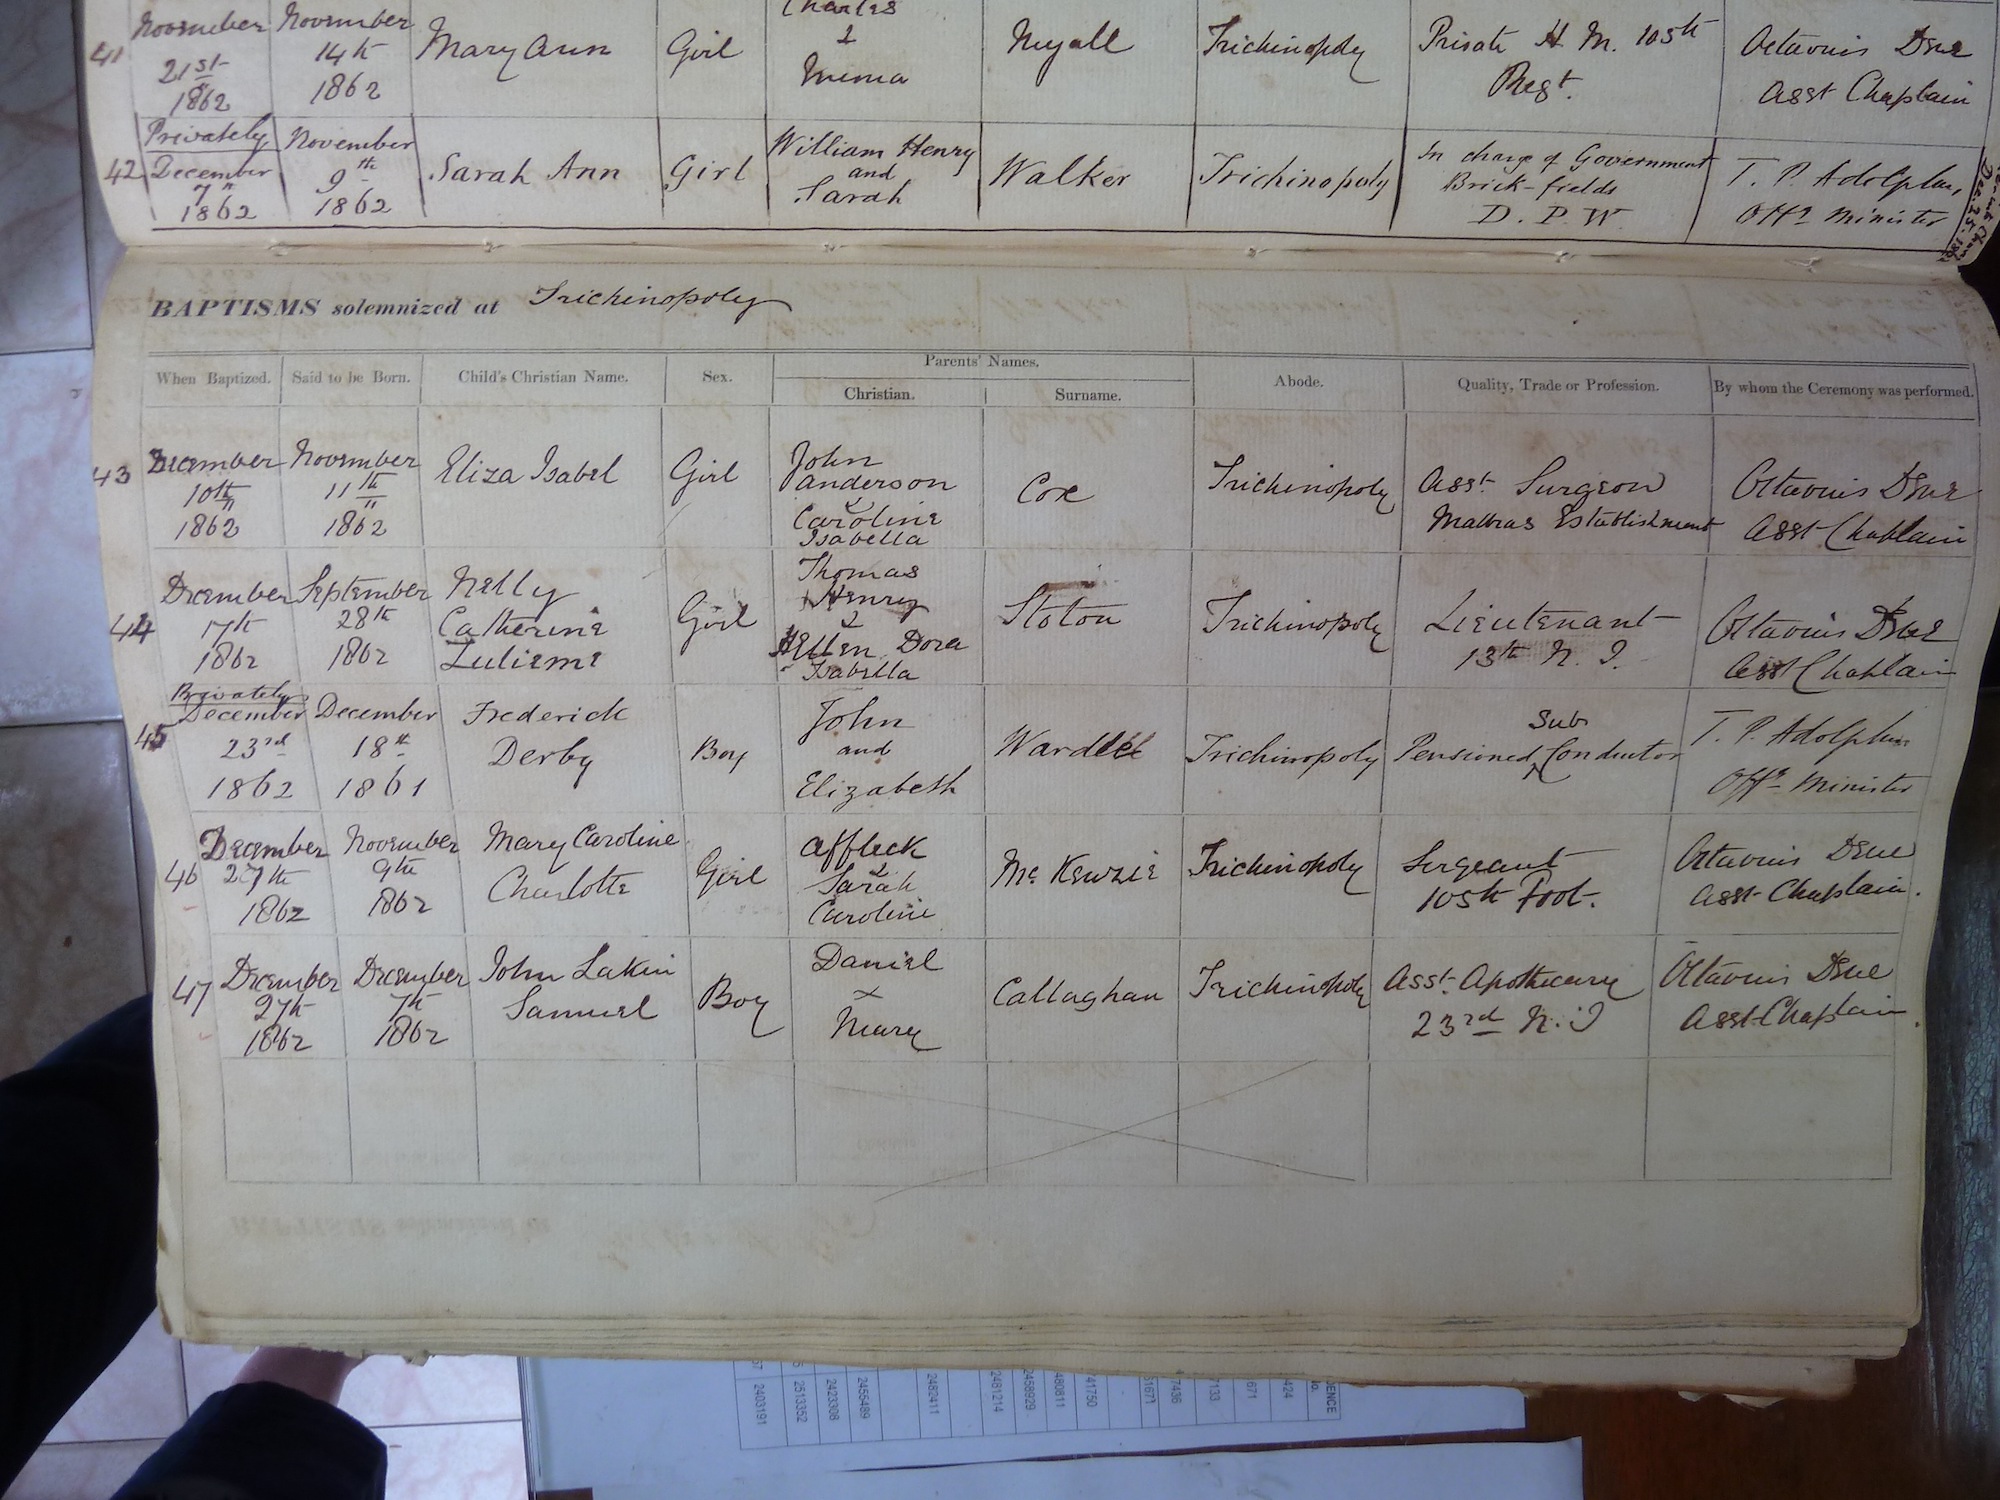 Charles
November November Mary Ann Girl & Myall Trichinopoly Private H. M. 105th Octavius Dene
41 21st 14th Mema Regt. Asst Chaplain
1862 1862
Privately November William Henry In charge of Government
42 December 9th Sarah Ann Girl and Walker Trichinopoly Brick-fields T. P. Adolphus
7th 1862 Sarah D. P. W. Offg Minister
1862
Dec. 25. 186
BAPTISMS solemnized at Trichinopoly
Parents' Names.
When Baptized. Said to be Born. Child's Christian Name. Sex. Christian. Surname. Abode. Quality, Trade or Profession. By whom the Ceremony was performed.
43 December November Eliza Isabel Girl John Cox Trichinopoly Asst. Surgeon Octavius Dene
10th 11th Anderson Madras Establishment Asst Chaplain
1862 1862 &
Caroline
Isabella
December September Nelly Thomas Stoton Trichinopoly Lieutenant Octavius Dene
44 17th 28th Catherine Girl Henry 13th N. I. Asst Chaplain
1862 1862 Zulieme &
Hellen Dora
Isabella
Privately
December December Frederick John Sub
45 23rd 18th Derby Boy and Wardell Trichinopoly Pensioned Conductor T. P. Adolphus
1862 1861 Elizabeth Offg Minister
December November Mary Caroline Affleck
46 27th 9th Charlotte Girl & Mc Kenzie Trichinopoly Sergeant Octavius Dene
1862 1862 Sarah 105th Foot. Asst Chaplain.
Caroline
December December John Lakin Daniel
47 27th 7th Samuel Boy & Callaghan Trichinopoly Asst. Apothecary Octavius Dene
1862 1862 Mary 23rd N. I Asst Chaplain.
2403191
2513352
2423308
2455489
2482411
2481214
2458929
480811
41750
51671
7436
7133
671
424
DENCE
No.